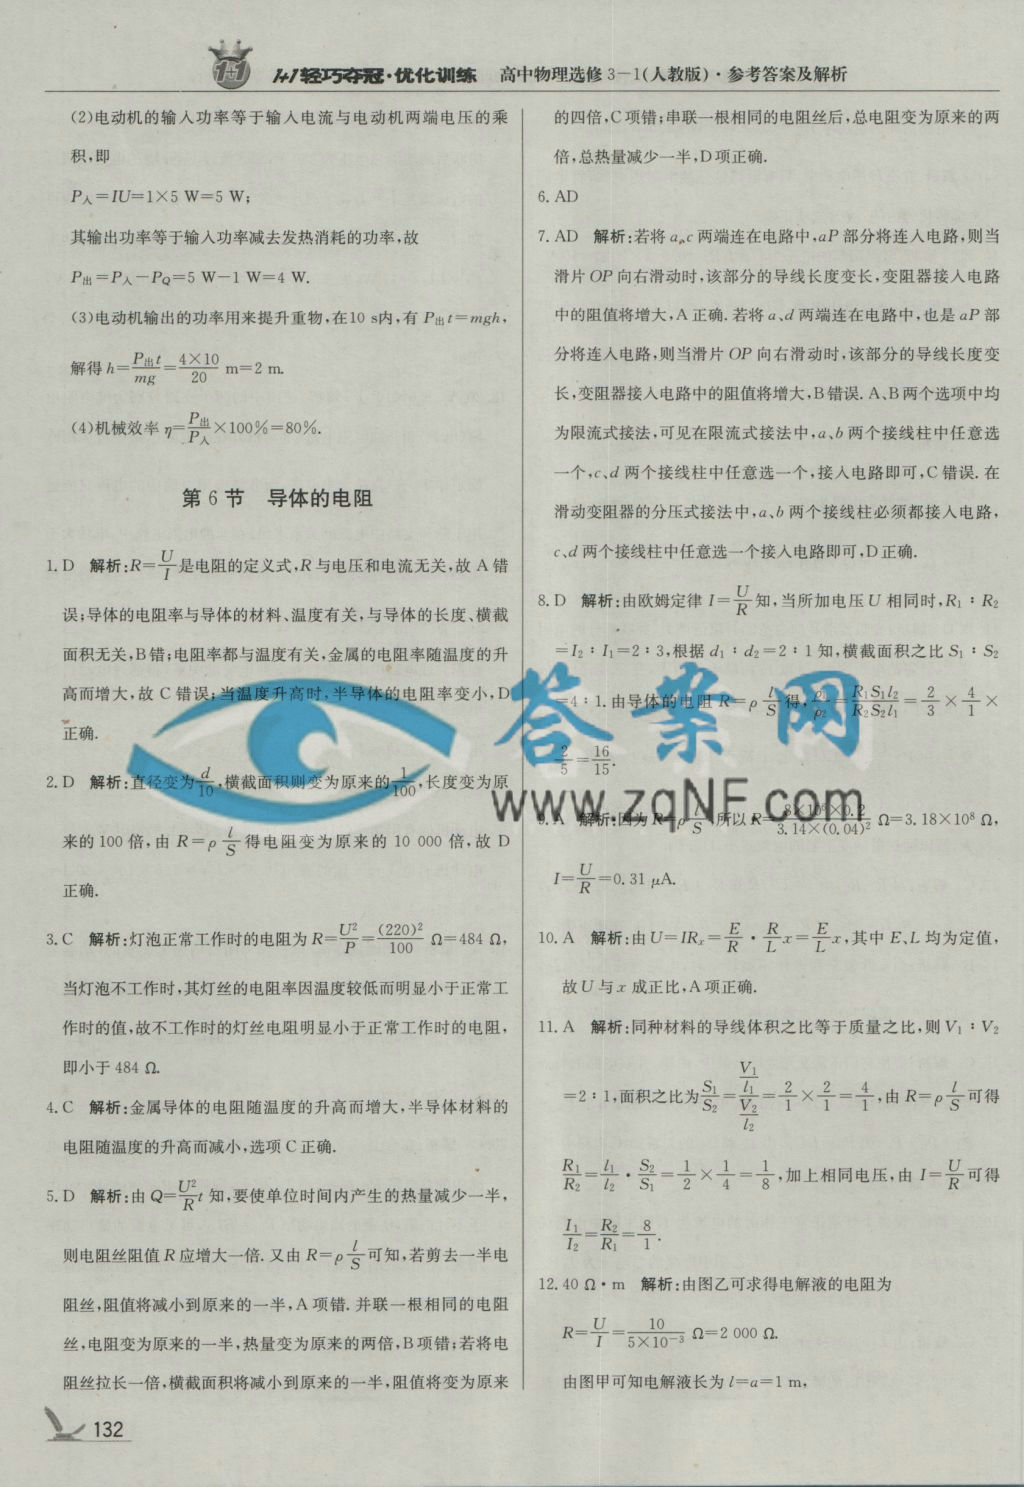 1+1轻巧夺冠·优化训练 高中物理选修3-1(人教版)·参考答案及解析
(2)电动机的输入功率等于输入电流与电动机两端电压的乘
积,即
P入=IU=1×5 W=5 W;
其输出功率等于输入功率减去发热消耗的功率,故
P出=P入-PQ=5 W-1 W=4 W.
(3)电动机输出的功率用来提升重物,在10 s内,有 P出t=mgh,
解得h=P出t/mg=4×10/20 m=2 m.
(4)机械效率 η=P出/P入×100%=80%.
第 6 节 导体的电阻
1. D 解析:R=U/I是电阻的定义式,R与电压和电流无关,故 A 错
误;导体的电阻率与导体的材料、温度有关,与导体的长度、横截
面积无关,B错;电阻率都与温度有关,金属的电阻率随温度的升
高而增大,故 C 错误;当温度升高时,半导体的电阻率变小,D
正确.
2. D 解析:直径变为d/10,横截面积则变为原来的1/100,长度变为原
来的100倍,由 R=ρ l/S 得电阻变为原来的 10 000 倍,故 D
正确.
3. C 解析:灯泡正常工作时的电阻为 R=U²/P=(220)²/100 Ω=484 Ω,
当灯泡不工作时,其灯丝的电阻率因温度较低而明显小于正常工
作时的值,故不工作时的灯丝电阻明显小于正常工作时的电阻,
即小于 484 Ω.
4. C 解析:金属导体的电阻随温度的升高而增大,半导体材料的
电阻随温度的升高而减小,选项 C 正确.
5. D 解析:由 Q=U²/R t 知,要使单位时间内产生的热量减少一半,
则电阻丝阻值 R 应增大一倍. 又由 R=ρ l/S 可知,若剪去一半电
阻丝,阻值将减小到原来的一半,A 项错. 并联一根相同的电阻
丝,电阻变为原来的一半,热量变为原来的两倍,B项错;若将电
阻丝拉长一倍,横截面积将减小到原来的一半,阻值将变为原来
132
的四倍,C项错;串联一根相同的电阻丝后,总电阻变为原来的两
倍,总热量减少一半,D项正确.
6. AD
7. AD 解析:若将 a、c 两端连在电路中,aP 部分将连入电路,则当
滑片 OP 向右滑动时,该部分的导线长度变长,变阻器接入电路
中的阻值将增大,A 正确. 若将 a、d 两端连在电路中,也是 aP 部
分将连入电路,则当滑片 OP 向右滑动时,该部分的导线长度变
长,变阻器接入电路中的阻值将增大,B错误. A、B两个选项中均
为限流式接法,可见在限流式接法中,a、b 两个接线柱中任意选
一个,c、d 两个接线柱中任意选一个,接入电路即可,C 错误. 在
滑动变阻器的分压式接法中,a、b 两个接线柱必须都接入电路,
c、d两个接线柱中任意选一个接入电路即可,D正确.
8. D 解析:由欧姆定律 I=U/R知,当所加电压 U 相同时,R₁∶R₂
=I₂∶I₁=2∶3,根据 d₁∶d₂=2∶1 知,横截面积之比 S₁∶S₂
=4∶1. 由导体的电阻 R=ρ l/S得,ρ₁/ρ₂=R₁S₁l₂/R₂S₂l₁=2/3×4/1×
2/5=16/15.
9. A 解析:因为 R=ρ l/S,所以 R=8×10⁶×0.2/3.14×(0.04)² Ω=3.18×10⁸ Ω,
I=U/R=0.31 μA.
10. A 解析:由 U=IRₓ=E/R·R/L x=E/L x,其中 E、L 均为定值,
故 U 与 x 成正比,A 项正确.
11. A 解析:同种材料的导线体积之比等于质量之比,则 V₁∶V₂
=2∶1,面积之比为S₁/S₂=(V₁/l₁)/(V₂/l₂)=2/1×2/1=4/1,由 R=ρ l/S可得
R₁/R₂=l₁/l₂·S₂/S₁=1/2×1/4=1/8,加上相同电压,由 I=U/R可得
I₁/I₂=R₂/R₁=8/1.
12. 40 Ω·m 解析:由图乙可求得电解液的电阻为
R=U/I=10/5×10⁻³ Ω=2 000 Ω.
由图甲可知电解液长为 l=a=1 m,
答案网
www.zqNF.com